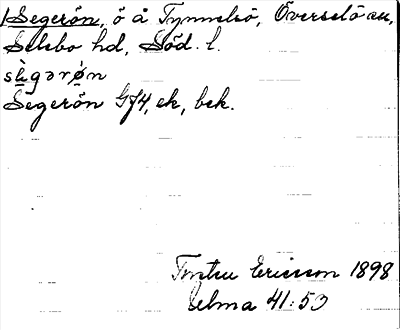 Segerön, ö å Tynnelsö, Överselö sn,
Selebo hd, Söd. l.
Segerön G74, ek, bek.
Ericsson 1898
Selma 41:50